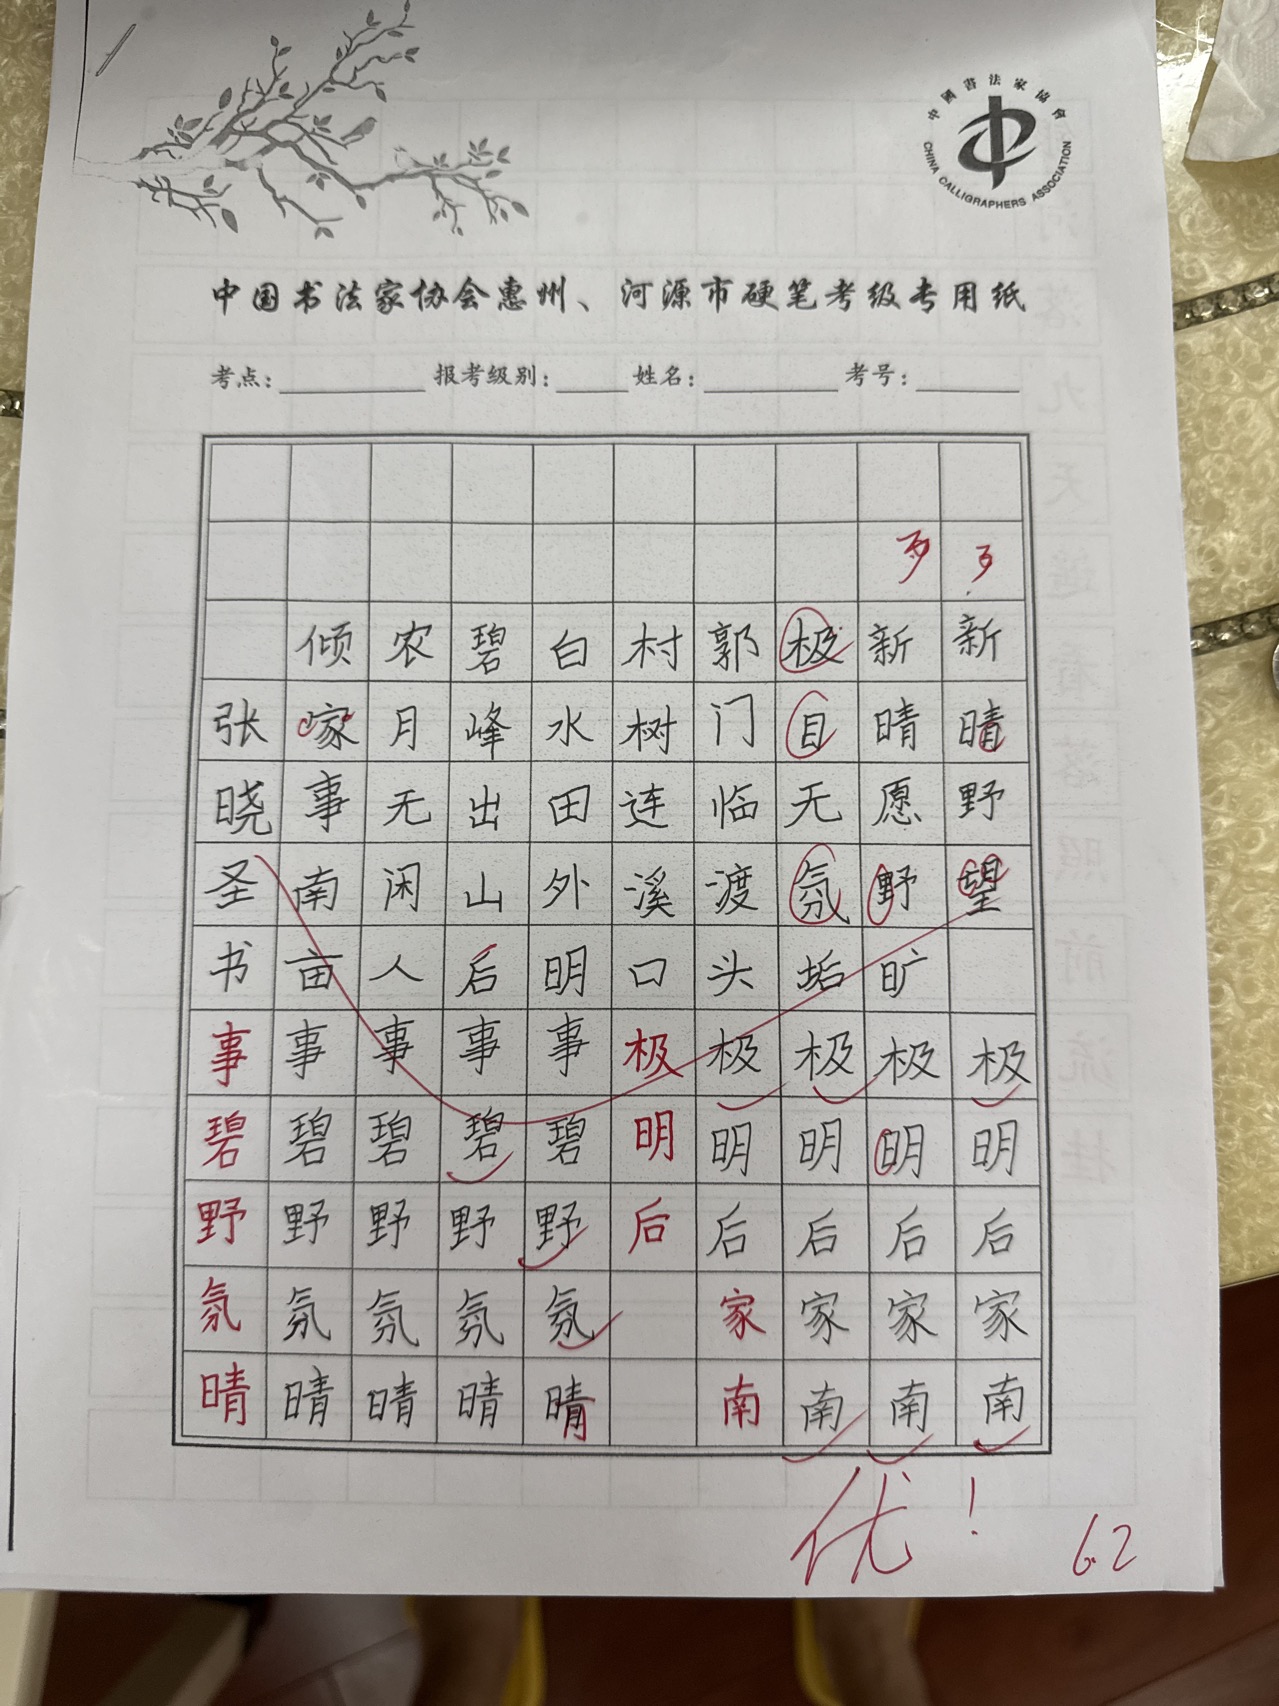 中國書法家協會
CHINA CALLIGRAPHERS ASSOCIATION
中国书法家协会惠州、河源市硬笔考级专用纸
考点: 报考级别: 姓名: 考号:
新晴野望
新晴愿野旷
极目无氛垢
郭门临渡头
村树连溪口
白水田外明
碧峰出山后
农月无闲人
倾家事南亩
张晓圣书
事事事事事极极极极极
碧碧碧碧碧明明明明明
野野野野野后后后后后
氛氛氛氛氛 家家家家
晴晴晴晴晴 南南南南
优!
6.2